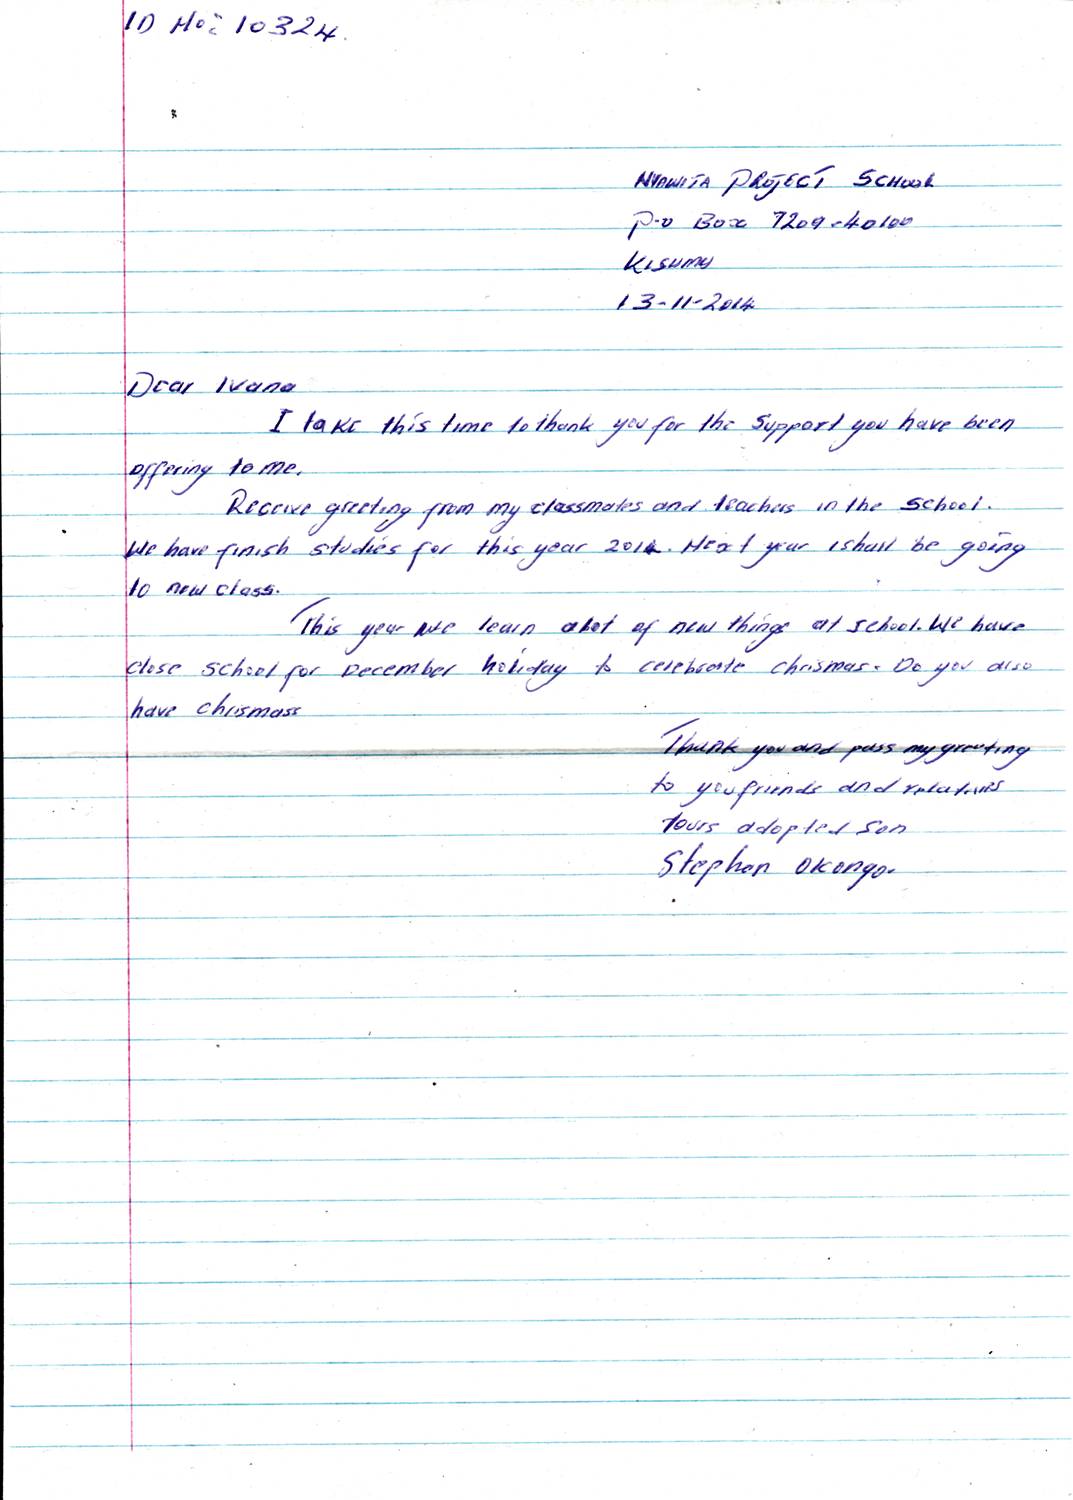 ID No: 10324.
NYAWITA PROJECT SCHOOL
P.O BOX 7209-40100
KISUMU
13-11-2014
Dear Ivana
I take this time to thank you for the support you have been
offering to me.
Receive greeting from my classmates and teachers in the school.
We have finish studies for this year 2014. Next year ishall be going
to new class.
This year we learn alot of new things at school. We have
close school for December holiday to celebrate chrismas. Do you also
have chrismass
Thank you and pass my greeting
to you friends and relatives
Yours adopted son
Stephen Okongo.